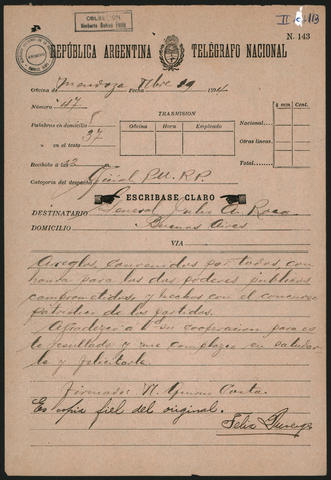 OBLEA
II
113
N. 143
REPÚBLICA ARGENTINA TELÉGRAFO NACIONAL
Oficina de Mendoza Fecha 29 1904
Número 47
$ m/n Cent.
Palabras en domicilio 5
TRASMISION
Nacional
" en el texto 37
Oficina Hora Empleado
Otras líneas
Recibido á las
Total
Categoría del despacho Oficial
ESCRIBASE CLARO
DESTINATARIO General Julio A. Roca
DOMICILIO Buenos Aires
VIA
Arreglos convenidos por todos con
honra para los dos poderes públicos
comprometidos, y hechos con el concurso
patriótico de los partidos.
Agradezco á su cooperacion para es
te resultado y me complazco en saludar
le y felicitarle.
Firmado: Costa.
Es copia fiel del original.
Felix